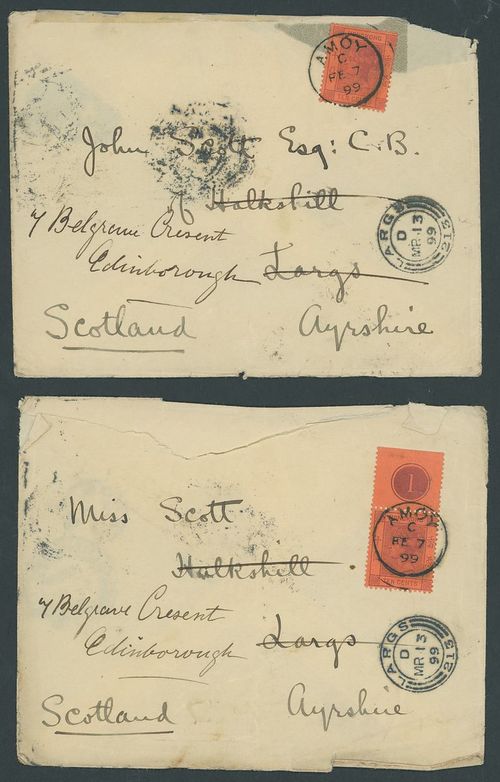 HONG KONG
AMOY
C
FE 7
99
TEN CENTS
John Scott Esq: C.B.
Halkshill
7 Belgrave Cresent
Edinborough Largs
Scotland Ayrshire
LARGS
D
MR 13
99
213
1
AMOY
C
FE 7
99
TEN CENTS
Miss Scott
Halkshill
7 Belgrave Cresent
Edinborough Largs
Scotland Ayrshire
LARGS
D
MR 13
99
213